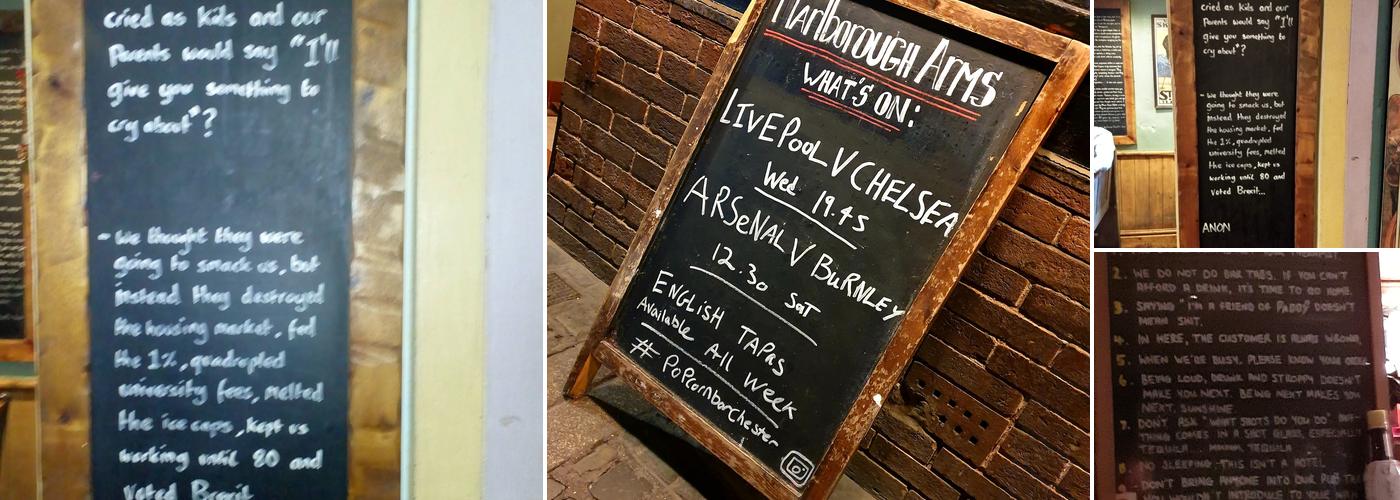 cried as kids and our
Parents would say "I'll
give you something to
cry about"?
- We thought they were
going to smack us, but
instead they destroyed
the housing market, fed
the 1%, quadrupled
university fees, melted
the ice caps, kept us
working until 80 and
voted Brexit
Marlborough Arms
WHAT'S ON:
LIVEPooL V CHELSEA
Wed 19.45
ARSeNAL V BuRNLEY
12.30 SaT
ENGLISH TAPas
Available All Week
# PoPcornborchester
cried as kids and our
Parents would say "I'll
give you something to
cry about"?
- We thought they were
going to smack us, but
instead they destroyed
the housing market, fed
the 1%, quadrupled
university fees, melted
the ice caps, kept us
working until 80 and
voted Brexit...
ANON
2. WE DO NOT DO BAR TABS. IF YOU CAN'T
AFFORD A DRINK, IT'S TIME TO GO HOME.
3. SAYING "I'M A FRIEND OF PADDY" DOESN'T
MEAN SHIT.
4. IN HERE, THE CUSTOMER IS ALWAYS WRONG.
5. WHEN WE'RE BUSY, PLEASE KNOW YOUR ORDER
6. BEING LOUD, DRUNK AND STROPPY DOESN'T
MAKE YOU NEXT. BEING NEXT MAKES YOU
NEXT, SUNSHINE
7. DON'T ASK "WHAT SHOTS DO YOU DO" ANY-
THING COMES IN A SHOT GLASS, ESPECIALLY
TEQUILA... MMMM TEQUILA
8. NO SLEEPING - THIS ISN'T A HOTEL
DON'T BRING ANYONE INTO OUR PUB THAT
YOU WOULDN'T INTRODUCE TO YOUR